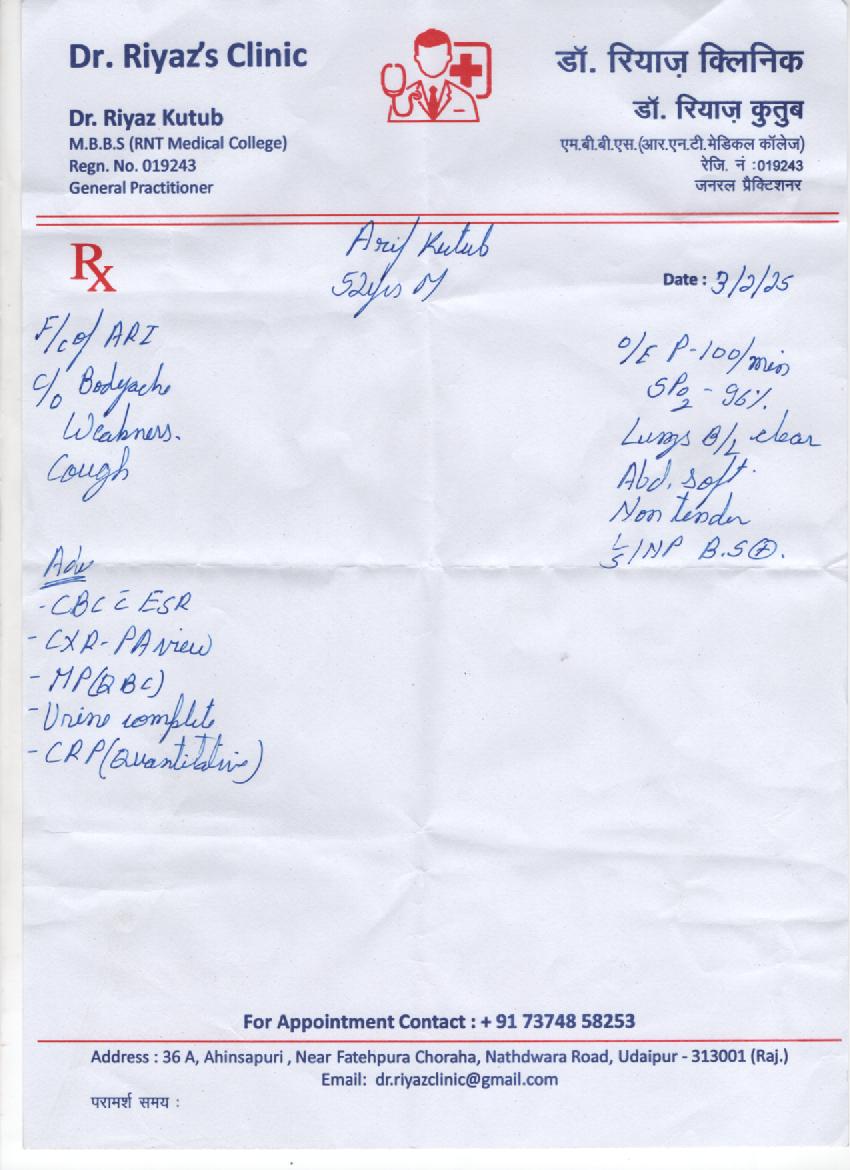 Dr. Riyaz's Clinic
Dr. Riyaz Kutub
M.B.B.S (RNT Medical College)
Regn. No. 019243
General Practitioner
डॉ. रियाज़ क्लिनिक
डॉ. रियाज़ कुतुब
एम.बी.बी.एस.(आर.एन.टी.मेडिकल कॉलेज)
रेजि. नं :019243
जनरल प्रैक्टिशनर
Rx
Arif Kutub
52yrs M
Date : 3/2/25
F/c/o ARI
c/o Bodyache
Weakness.
Cough
O/E P-100/min
SPO2 - 96%.
Lungs B/L clear
Abd. soft.
Non tender
L/S/NP B.S(+).
Adv
- CBC c̄ ESR
- CXR- PA view
- MP(QBC)
- Urine complete
- CRP(Quantitative)
For Appointment Contact : + 91 73748 58253
Address : 36 A, Ahinsapuri , Near Fatehpura Choraha, Nathdwara Road, Udaipur - 313001 (Raj.)
Email: dr.riyazclinic@gmail.com
परामर्श समय :